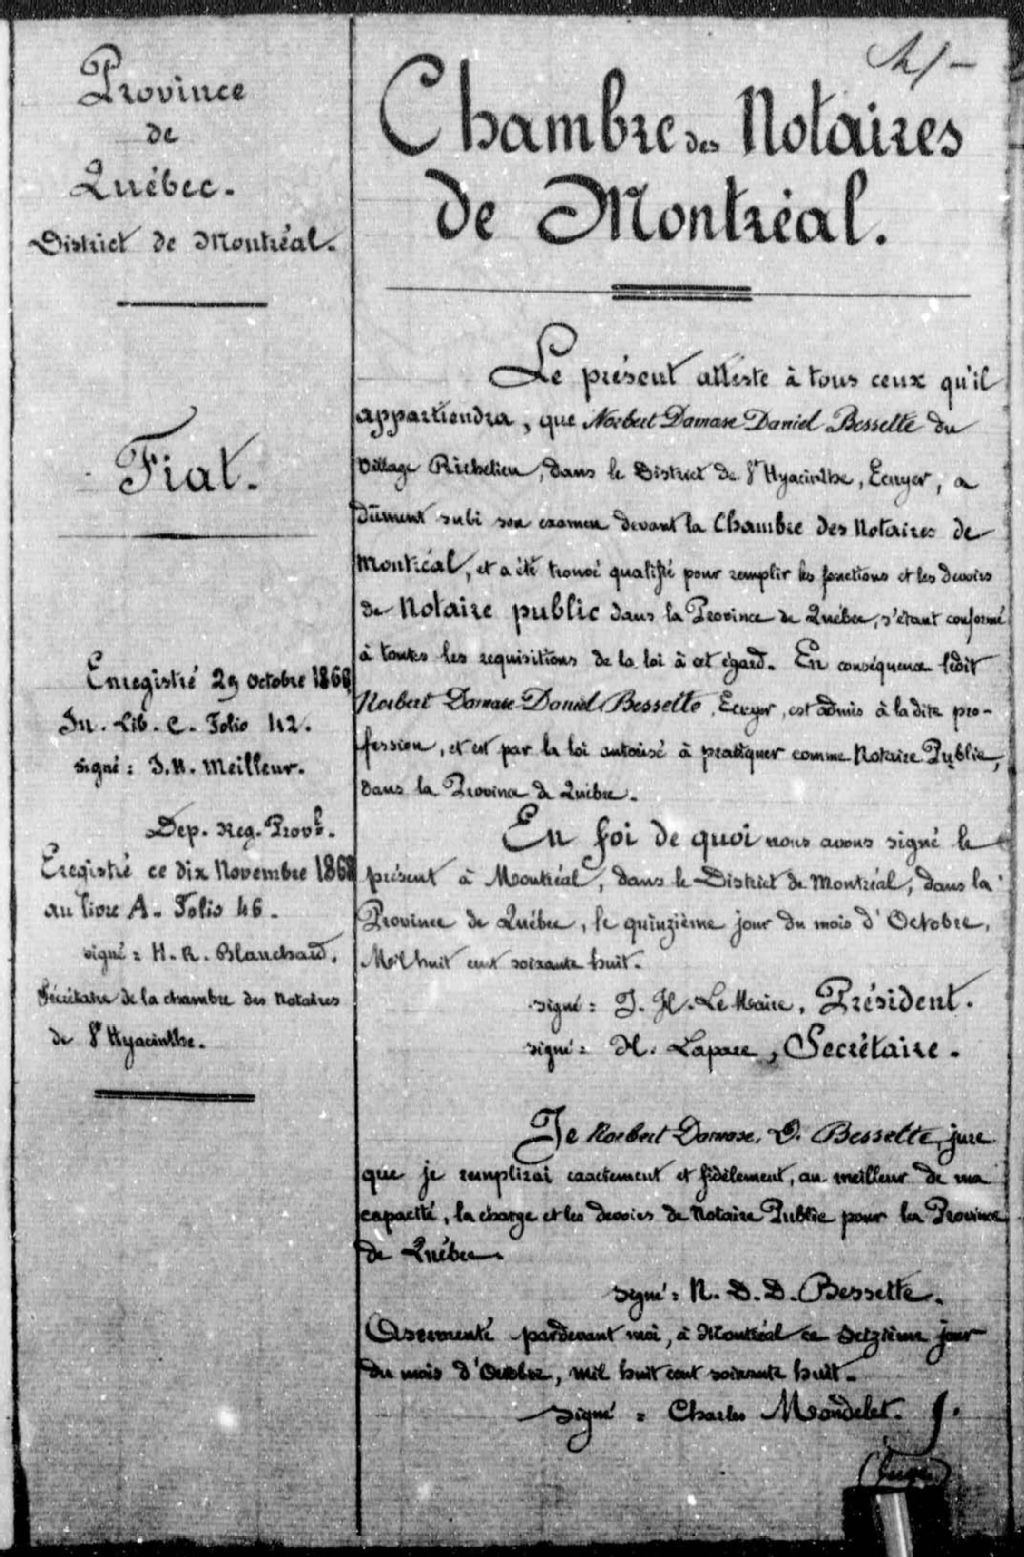 Province
de
Québec.
District de Montréal.
Fiat.
Enregistré 29 Octobre 1868
In. Lib. C. Folio 42.
signé : J. N. Meilleur.
Dep. Reg. Provl.
Eregistré ce dix Novembre 1868
au livre A. Folio 46.
signé : H. R. Blanchard.
Sécrétaire de la chambre des Notaires
de St Hyacinthe.
Chambre des Notaires
de Montréal.
Le présent atteste à tous ceux qu'il
appartiendra, que Norbert Damase Daniel Bessette du
Village Richelieu, dans le District de St Hyacinthe, Ecuyer, a
dûment subi son examen devant la Chambre des Notaires de
Montréal, et a été trouvé qualifié pour remplir les fonctions et les devoirs
de Notaire public dans la Province de Québec, s'étant conformé
à toutes les requisitions de la loi à cet égard. En conséquence ledit
Norbert Damase Daniel Bessette, Ecuyer, est admis à la dite pro-
fession, et est par la loi autorisé à pratiquer comme Notaire Public,
dans la Province de Québec.
En foi de quoi nous avons signé le
présent à Montréal, dans le District de Montréal, dans la
Province de Québec, le quinzième jour du mois d'Octobre,
Mil huit cent soixante huit.
signé : J. H. LeMaire, Président.
signé : H. Lapare, Secrétaire.
Je Norbert Damase, D. Bessette, jure
que je remplirai exactement et fidèlement, au meilleur de ma
capacité, la charge et les devoirs de Notaire Public pour la Province
de Québec.
signé : N. D. D. Bessette.
Assermenté pardevant moi, à Montréal ce Seizième jour
du mois d'Octobre, mil huit cent soixante huit.
signé : Charles Mondelet. J.
(Juge)